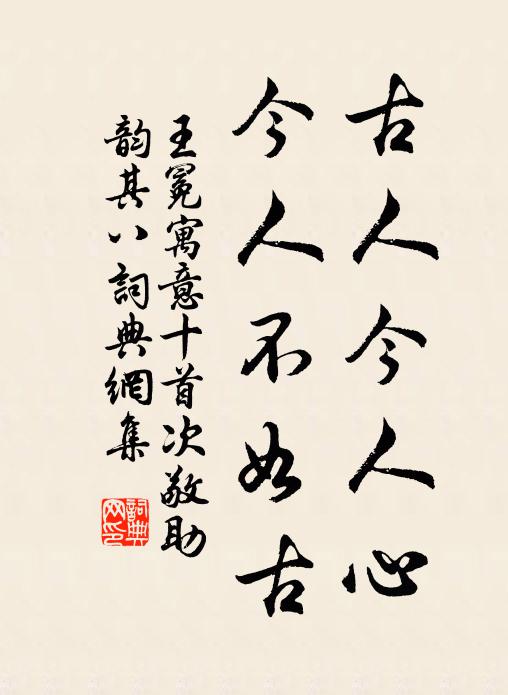 古人今人心
今人不如古
王冕寓意十首次敬助
韵其八詞典網集
詞典网印